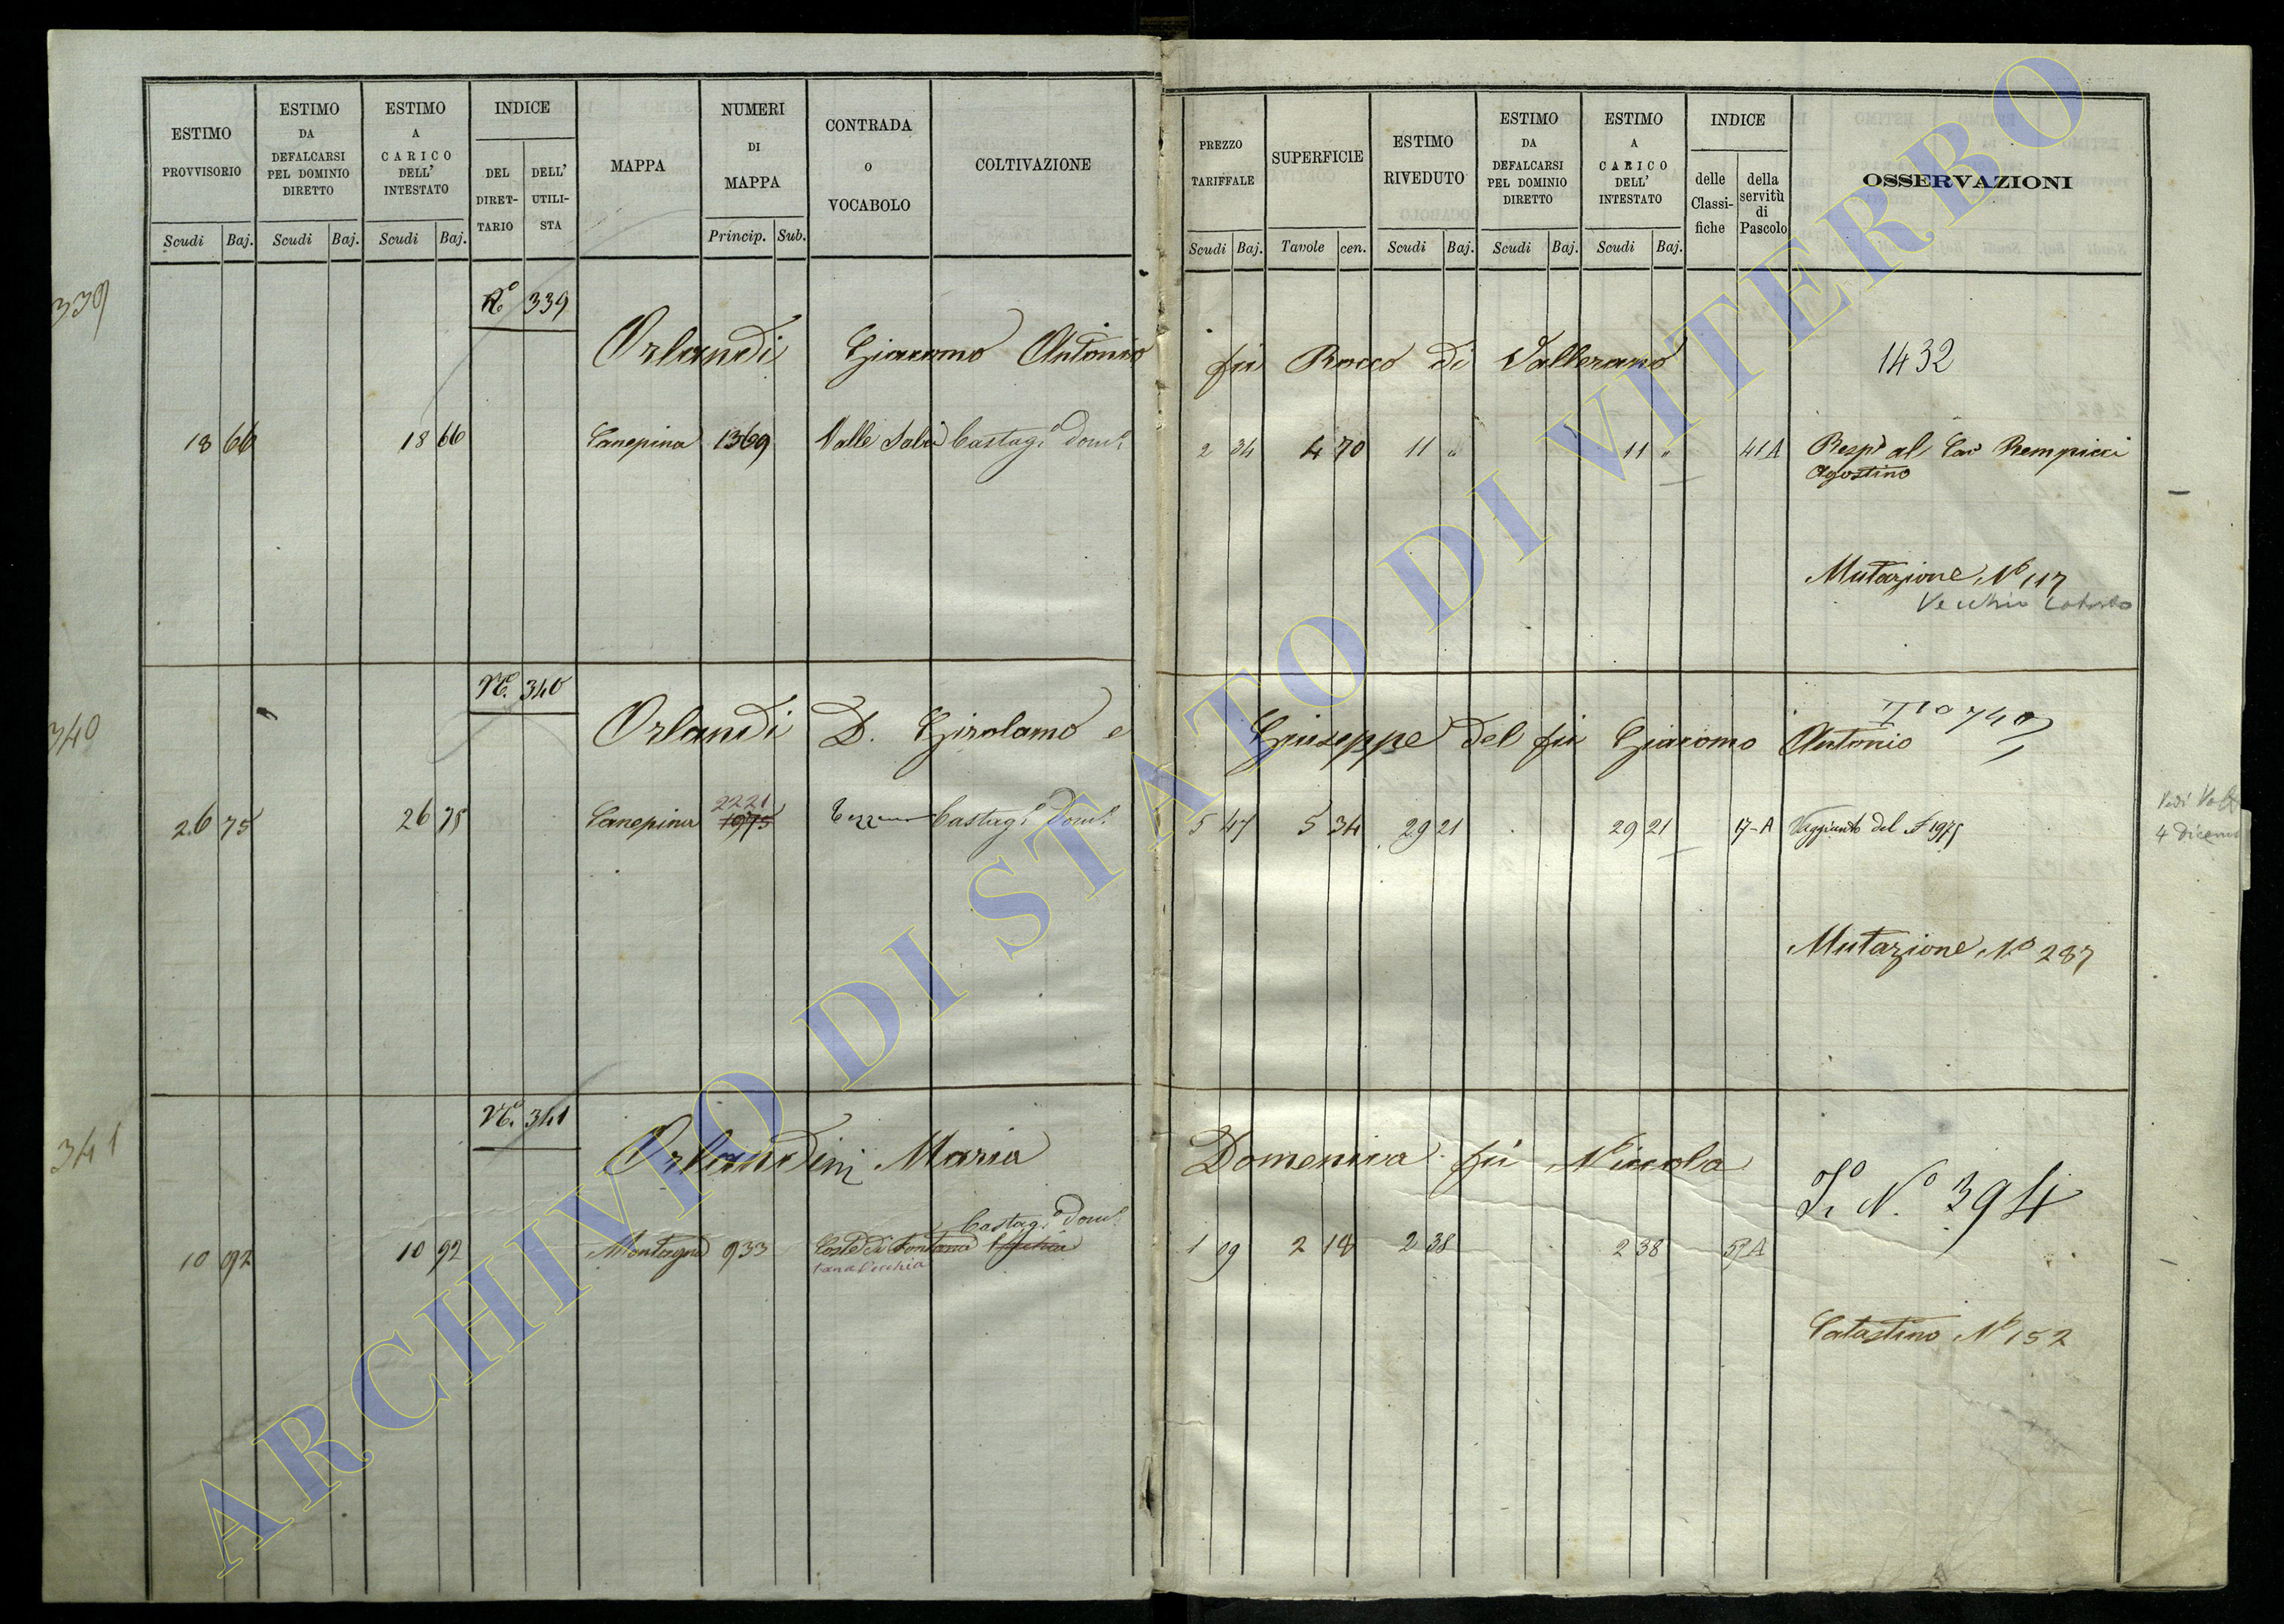 ESTIMO PROVVISORIO
ESTIMO DA DEFALCARSI PEL DOMINIO DIRETTO
ESTIMO A CARICO DELL' INTESTATO
INDICE
DEL DIRET-TARIO
DELL' UTILI-STA
MAPPA
NUMERI DI MAPPA
CONTRADA o VOCABOLO
COLTIVAZIONE
PREZZO TARIFFALE
SUPERFICIE
ESTIMO RIVEDUTO
ESTIMO DA DEFALCARSI PEL DOMINIO DIRETTO
ESTIMO A CARICO DELL' INTESTATO
INDICE
delle Classi-fiche
della servitù di Pascolo
OSSERVAZIONI
Scudi Baj. Scudi Baj. Scudi Baj. Princip. Sub. Scudi Baj. Tavole cen. Scudi Baj. Scudi Baj. Scudi Baj.
339
N.º 339
Orlandi Giacomo Antonio fù Rocco di Vallerano 1432
18 66 18 66 Canepina 1369 Valle Castag.º Dom.e 2 34 4 70 11 " 11 " 41 A Resp.e al Rempicci
Agostino
Mutazione Nº 117
Vecchio Catasto
340
N.º 340
Orlandi D. Girolamo e Giuseppe del fù Giacomo Antonio
740
2221
26 75 26 75 Canepina 1975 Castag.º Dom.e 5 47 5 34 29 21 29 21 17-A del 1975
Vedi
4 Dicem
Mutazione Nº 287
341
N.º 341
Orlandini Maria Domenica fù Nicola
Nº 394
Castag.º Dom.e
10 92 10 92 Montagna 933 Coste di Fontana Vecchia 1 09 2 18 2 38 2 38 A
tana Vecchia
Catastino Nº 152
ARCHIVIO DI STATO DI VITERBO